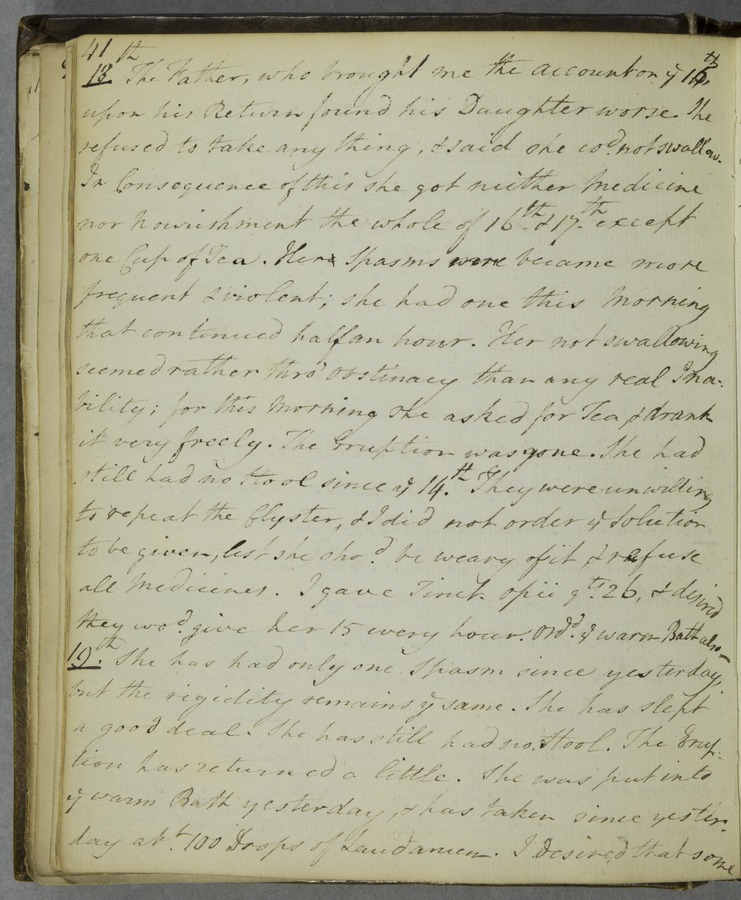 41
18th The Father, who brought me the account on ye 16th
upon his Return found his Daughter worse. She
refused to take any thing, & said she cod. not swallow.
In Consequence of this she got neither Medicine
nor Nourishment the whole of 16th. & 17th. except
one Cup of Tea. Her Spasms were became more
frequent & violent; she had one this Morning
that continued half an hour. Her not swallowing
seemed rather thro' obstinacy than any real Ina-
bility; for this Morning she asked for Tea & drank
it very freely. The Eruption was gone. She had
still had no Stool since ye 14th. They were unwilling
to repeat the Clyster, & I did not order ye Solution
to be given, lest she shod. be weary of it & refuse
all Medicines. I gave Tinct. opii gts. 26, & desired
they wod. give her 15 every hour. Ordd. ye warm Bath also—
19th. She has had only one Spasm since yesterday,
but the rigidity remains ye same. She has slept
a good deal. She has still had no Stool. The Erup-
tion has returned a little. She was put into
ye warm Bath yesterday, & has taken since yester-
day abt. 100 Drops of Laudanum. I Desired that some